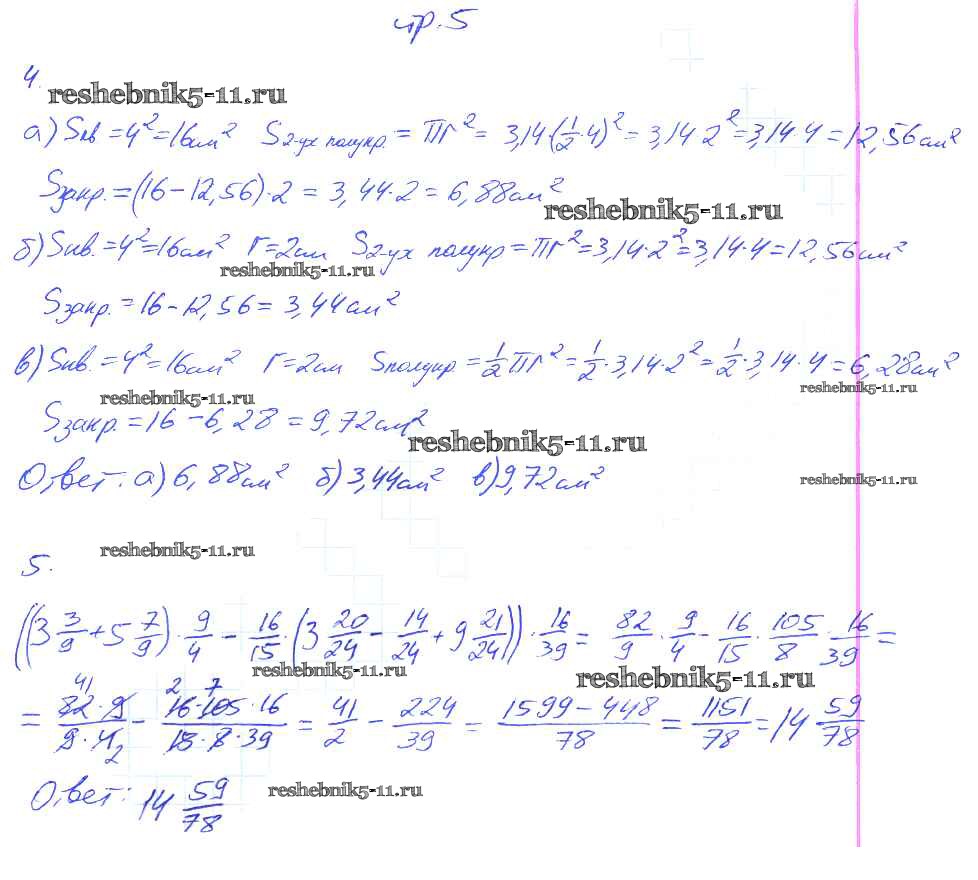 стр. 5
4.
reshebnik5-11.ru
а) Sкв = 4² = 16см² S2-ух полукр. = Пr² = 3,14·(1/2·4)² = 3,14·2² = 3,14·4 = 12,56см²
Sзакр. = (16 - 12,56)·2 = 3,44·2 = 6,88см²
reshebnik5-11.ru
б) Sкв. = 4² = 16см² r = 2см S2-ух полукр = Пr² = 3,14·2² = 3,14·4 = 12,56см²
reshebnik5-11.ru
Sзакр. = 16 - 12,56 = 3,44см²
в) Sкв. = 4² = 16см² r = 2см Sполукр = 1/2 Пr² = 1/2·3,14·2² = 1/2·3,14·4 = 6,28см²
reshebnik5-11.ru reshebnik5-11.ru
Sзакр. = 16 - 6,28 = 9,72см²
reshebnik5-11.ru
Ответ: а) 6,88см² б) 3,44см² в) 9,72см²
reshebnik5-11.ru
reshebnik5-11.ru
5.
((3 3/9 + 5 7/9)·9/4 - 16/15·(3 20/24 - 14/24 + 9 21/24))·16/39 = 82/9·9/4 - 16/15·105/8·16/39 =
reshebnik5-11.ru reshebnik5-11.ru
41 2 7
= 82·9/9·4 - 16·105·16/15·8·39 = 41/2 - 224/39 = 1599-448/78 = 1151/78 = 14 59/78
2
Ответ: 14 59/78
reshebnik5-11.ru